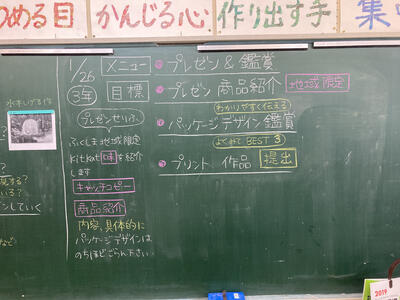 つめる目 かんじる心 作り出す手 集中
1/26 メニュー
3年 目標
・プレゼン&鑑賞
・プレゼン 商品紹介 地域限定
わかりやすく伝える
・パッケージデザイン鑑賞
よくみて BEST 3
・プリント 作品 提出
プレゼンせいふ
ふくしま地域限定
Kitkat 味を紹介
します
キャッチコピー
商品紹介
内容、具体的に
パッケージデザインは
のちほどごらん下さい
2019